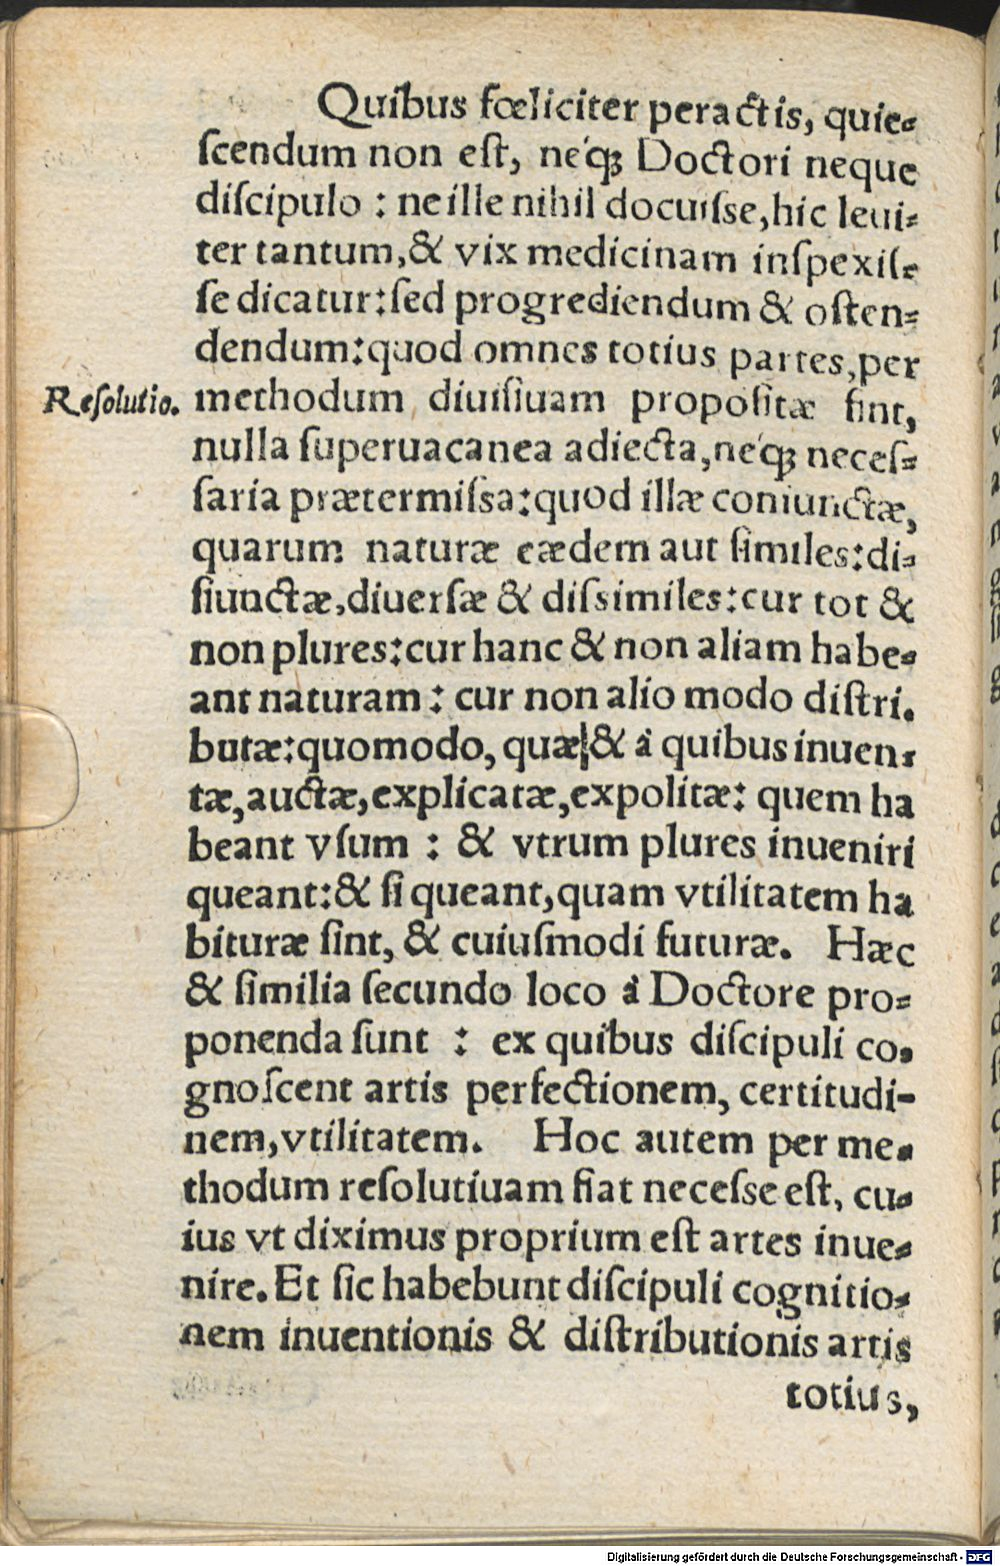 Quibus fœliciter peractis, quie-
ſcendum non eſt, neꝗ́; Doctori neque
diſcipulo : ne ille nihil docuiſse, hic leui-
ter tantum, & vix medicinam inſpexiſ-
ſe dicatur: ſed progrediendum & oſten-
dendum: quod omnes totius partes, per
Reſolutio. methodum diuiſiuam propoſitæ ſint,
nulla ſuperuacanea adiecta, neꝗ́; neceſ-
ſaria prætermiſsa: quod illæ coniunctæ,
quarum naturæ eædem aut ſimiles: di-
ſiunctæ, diuerſæ & diſsimiles: cur tot &
non plures: cur hanc & non aliam habe-
ant naturam : cur non alio modo diſtri-
butæ: quomodo, quæ & à quibus inuen-
tæ, auctæ, explicatæ, expolitæ: quem ha
beant vſum : & vtrum plures inueniri
queant: & ſi queant, quam vtilitatem ha
bituræ ſint, & cuiuſmodi futuræ. Hæc
& ſimilia ſecundo loco à Doctore pro-
ponenda ſunt : ex quibus diſcipuli co-
gnoſcent artis perfectionem, certitudi-
nem, vtilitatem. Hoc autem per me-
thodum reſolutiuam fiat neceſse eſt, cu-
ius vt diximus proprium eſt artes inue-
nire. Et ſic habebunt diſcipuli cognitio-
nem inuentionis & diſtributionis artis
totius,
Digitalisierung gefördert durch die Deutsche Forschungsgemeinschaft - DFG